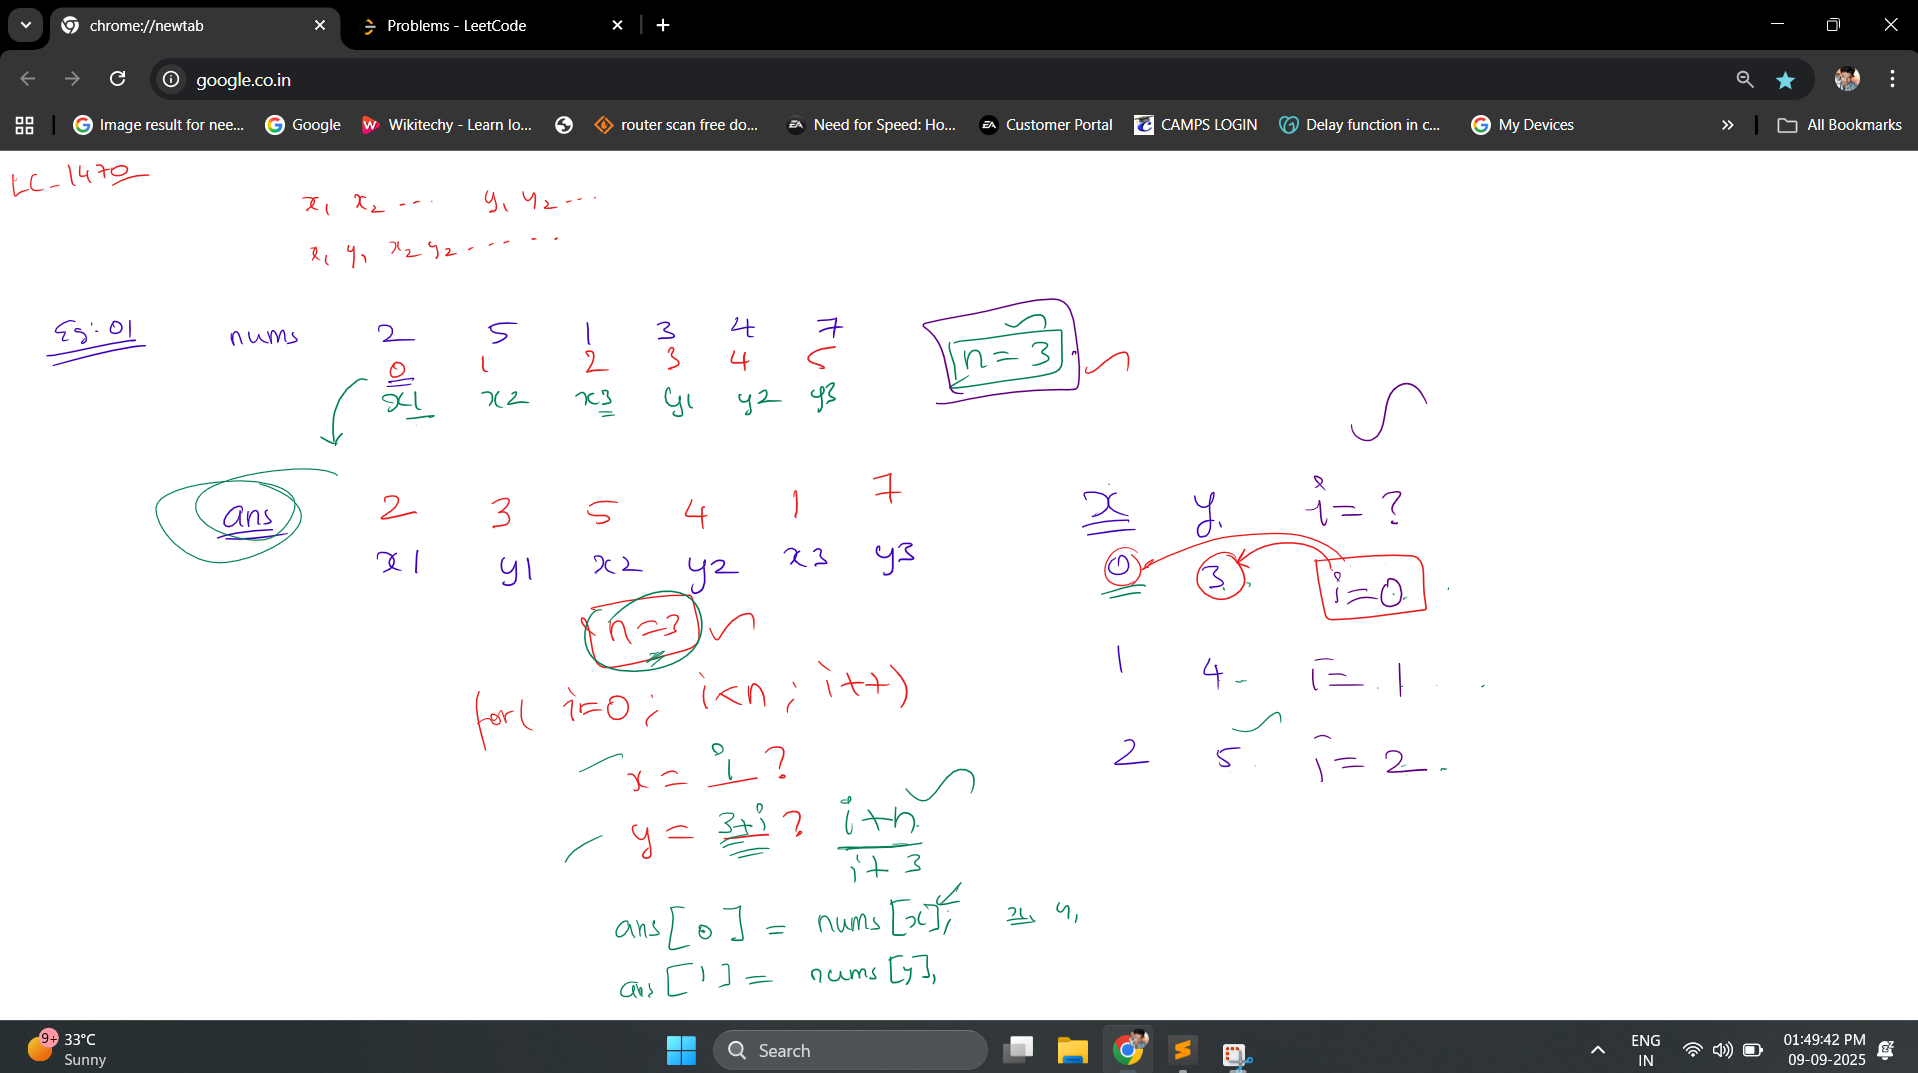 chrome://newtab
Problems - LeetCode
google.co.in
Image result for nee...
Google
Wikitechy - Learn lo...
router scan free do...
Need for Speed: Ho...
Customer Portal
CAMPS LOGIN
Delay function in c...
My Devices
All Bookmarks
LC_1470
x1 x2 ... y1 y2 ...
x1 y1 x2 y2 ......
Eg: 01 nums 2 5 1 3 4 7
n = 3
0 1 2 3 4 5
x1 x2 x3 y1 y2 y3
ans 2 3 5 4 1 7
x1 y1 x2 y2 x3 y3
x y i = ?
0 3 i=0
1 4 i = 1
2 5 i = 2
n=3
for( i=0; i<n; i++)
x = i ?
y = 3+i ? i+n
i+3
ans[0] = nums[x]; x1 y1
ans[1] = nums[y],
9+
33°C
Sunny
Search
ENG
IN
01:49:42 PM
09-09-2025